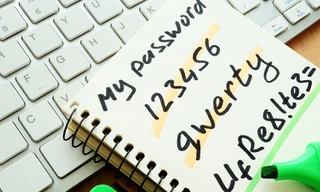 My password
123456
qwerty
UfRe&!te3=